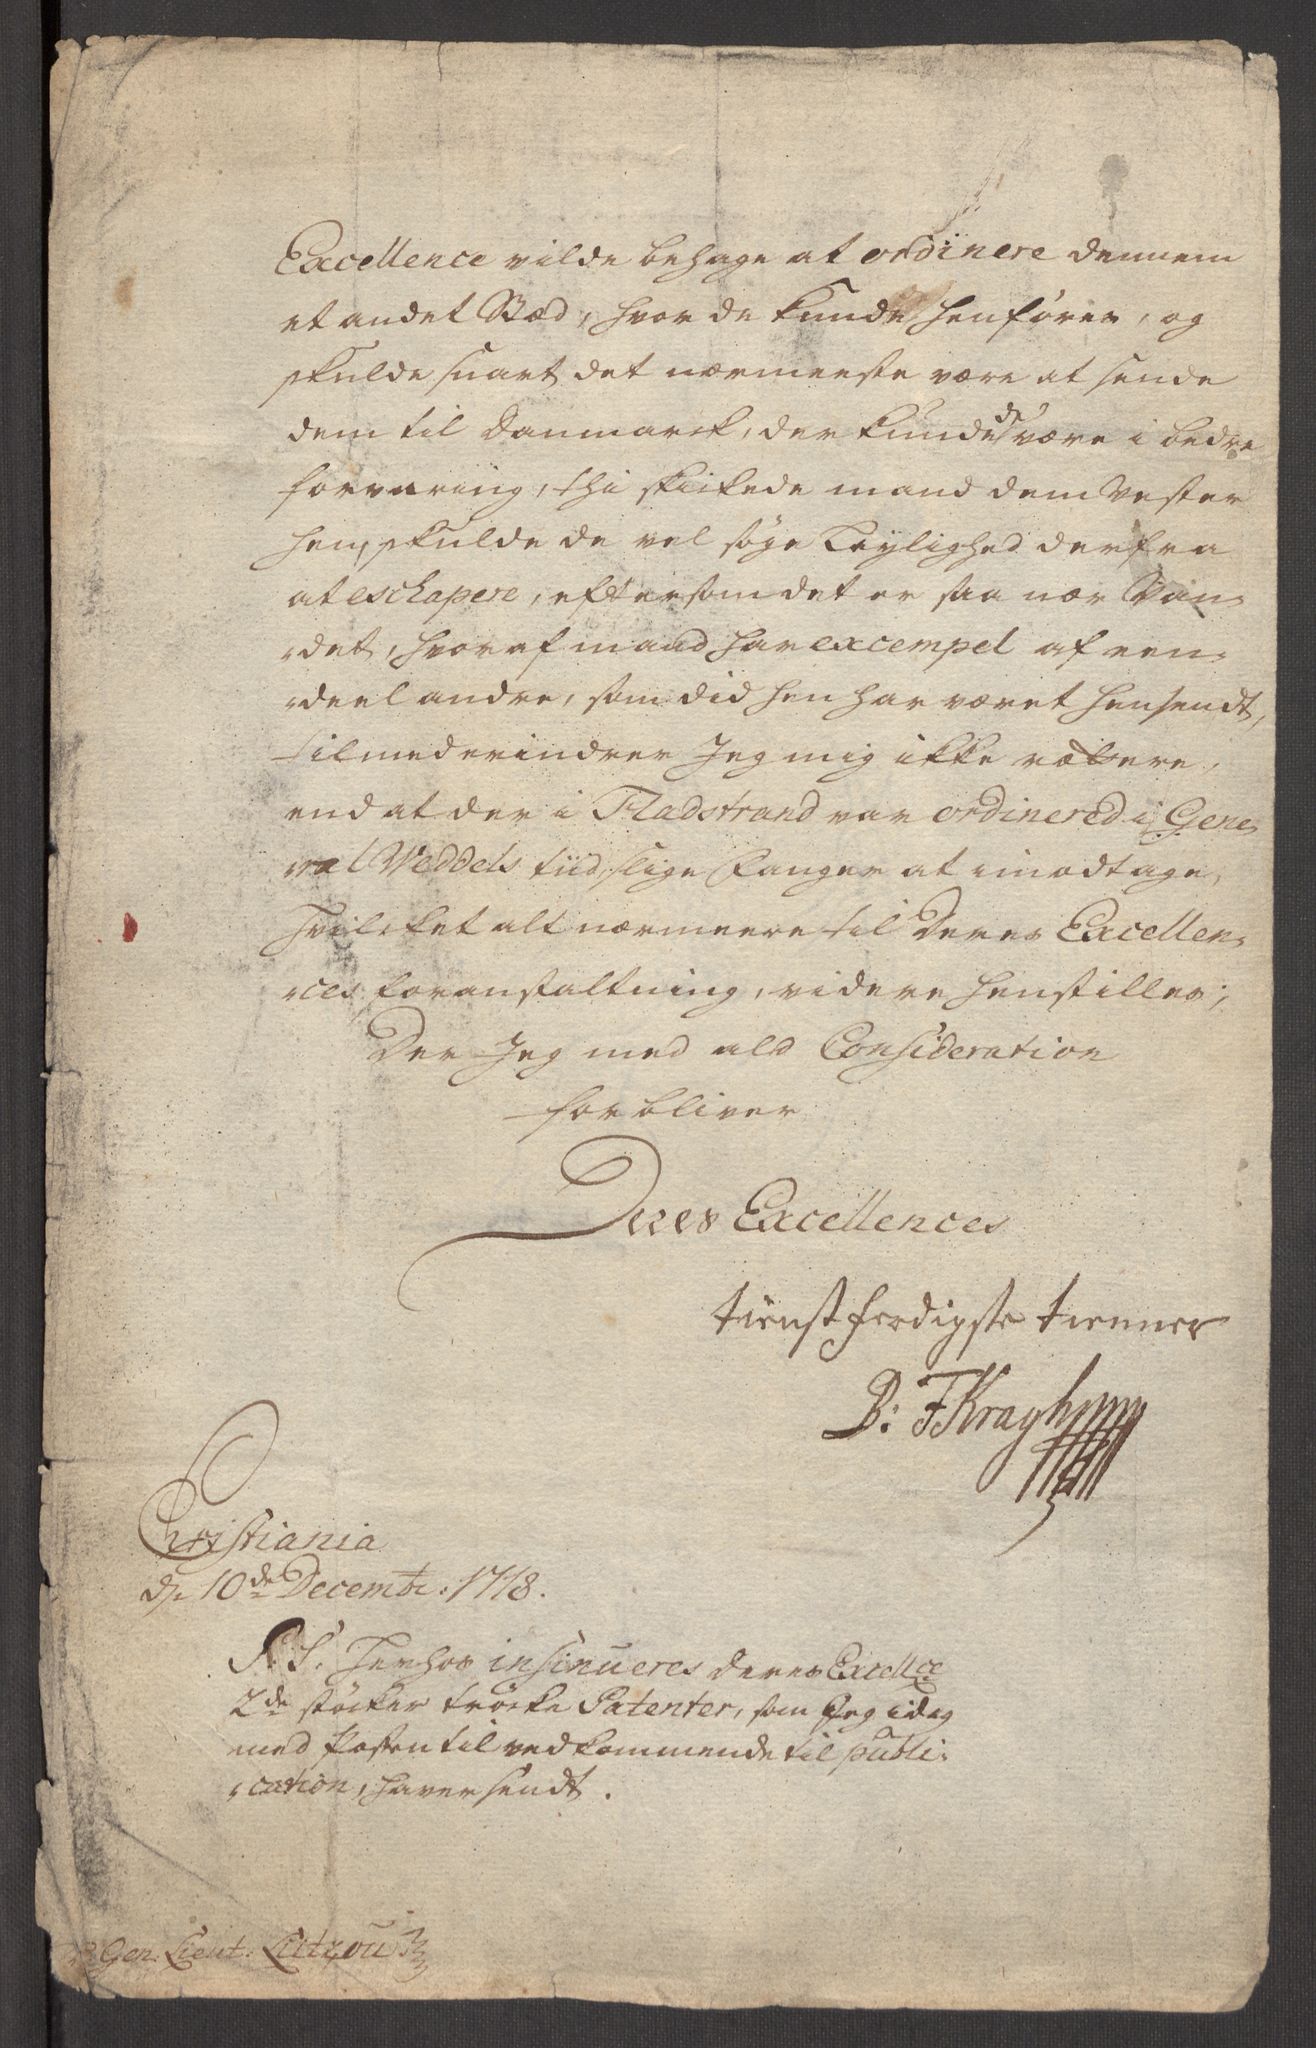 Excellence vilde behage at ordinere dennem
et andet Stæd, hvor de kunde henføres, og
skulde snart det nærmeste være at sende
dem til Danmarck, der kunde de være i bedre
forvaring, thi skickede mand dem Vester
hen, skulde de vel søge Leylighed derfra
at eschapere, eftersom det er saa nær Van-
-det, hvoraf mand har excempel af een-
-deel andre, som did hen har været hensendt,
tilmed erindrer Jeg mig ikke rættere,
end at der i Fladstrand var ordinered i Gene-
ral Weddels tiid, slige Fanger at imodtage,
hvilcket alt nærmeere til Deres Excellen-
-ces foranstaltning, videre henstilles;
Der Jeg med ald Consideration
forbliver
Deres Excellences
tienstferdigste tienner
B: F Kragh
Christiania
d. 10de Decembr: 1718.
P.S. Herhos insinueres deres Excellce
2de støcker trøcke Patenter, som Jeg idag
med Posten til vedkommende til publi-
-cation, haver sendt.
Gen: Lieut: Lützou